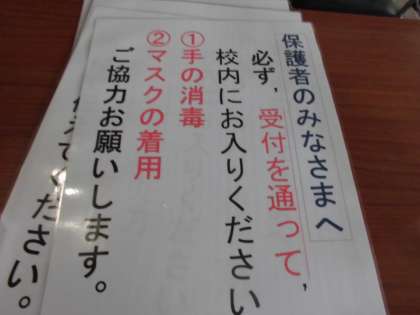 保護者のみなさまへ
必ず,受付を通って,
校内にお入りください
①手の消毒
②マスクの着用
ご協力お願いします。
ください。